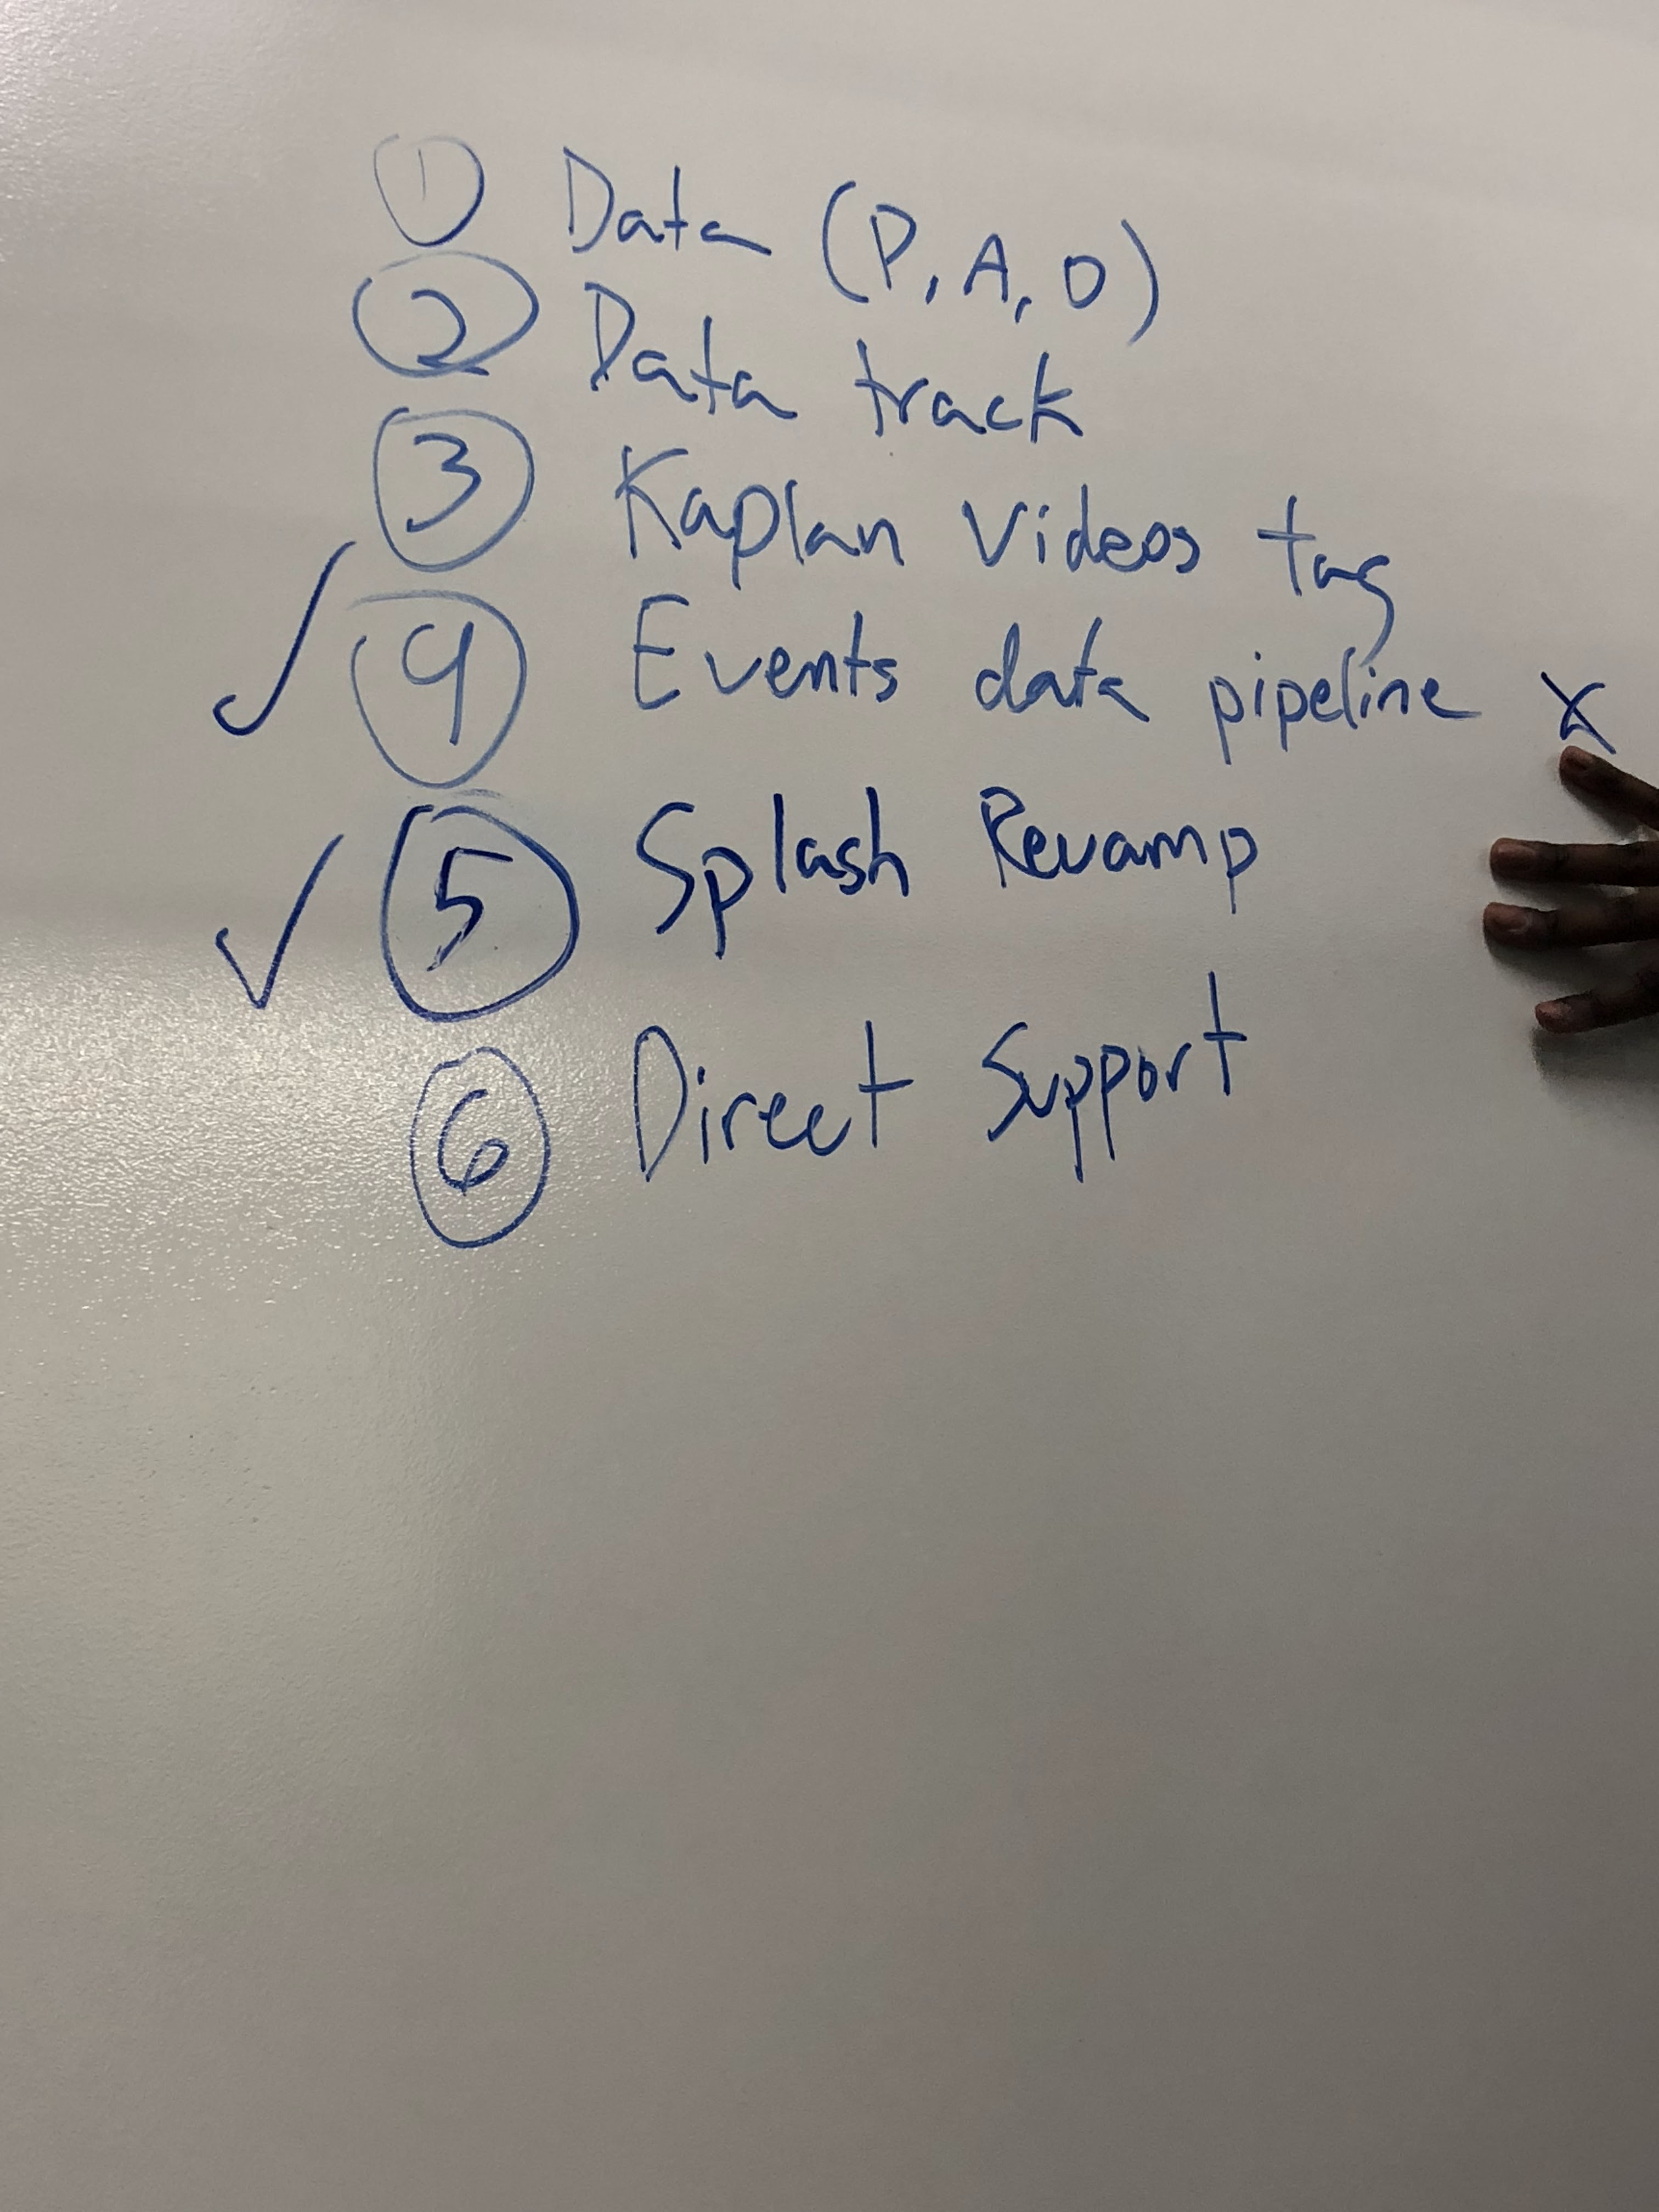 ① Data (P, A, O)
② Data track
③ Kaplan Videos tag
✓ ④ Events data pipeline X
✓ ⑤ Splash Revamp
⑥ Direct Support